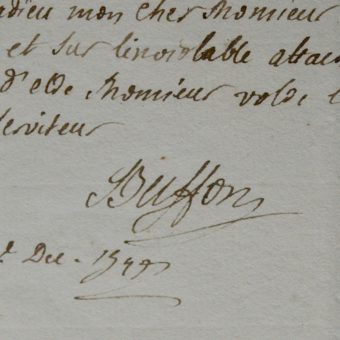 adieu mon cher Monsieur
et sur l'inviolable attac
d'etre Monsieur votre
serviteur
Buffon
Dec. 1749